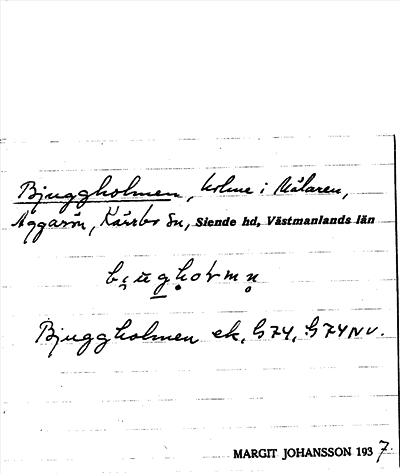 Bjuggholmen, holme i Mälaren,
Äggarön, Kärrbo sn, Siende hd, Västmanlands län
Bjuggholmen ek. G74, G74NV.
MARGIT JOHANSSON 1937.